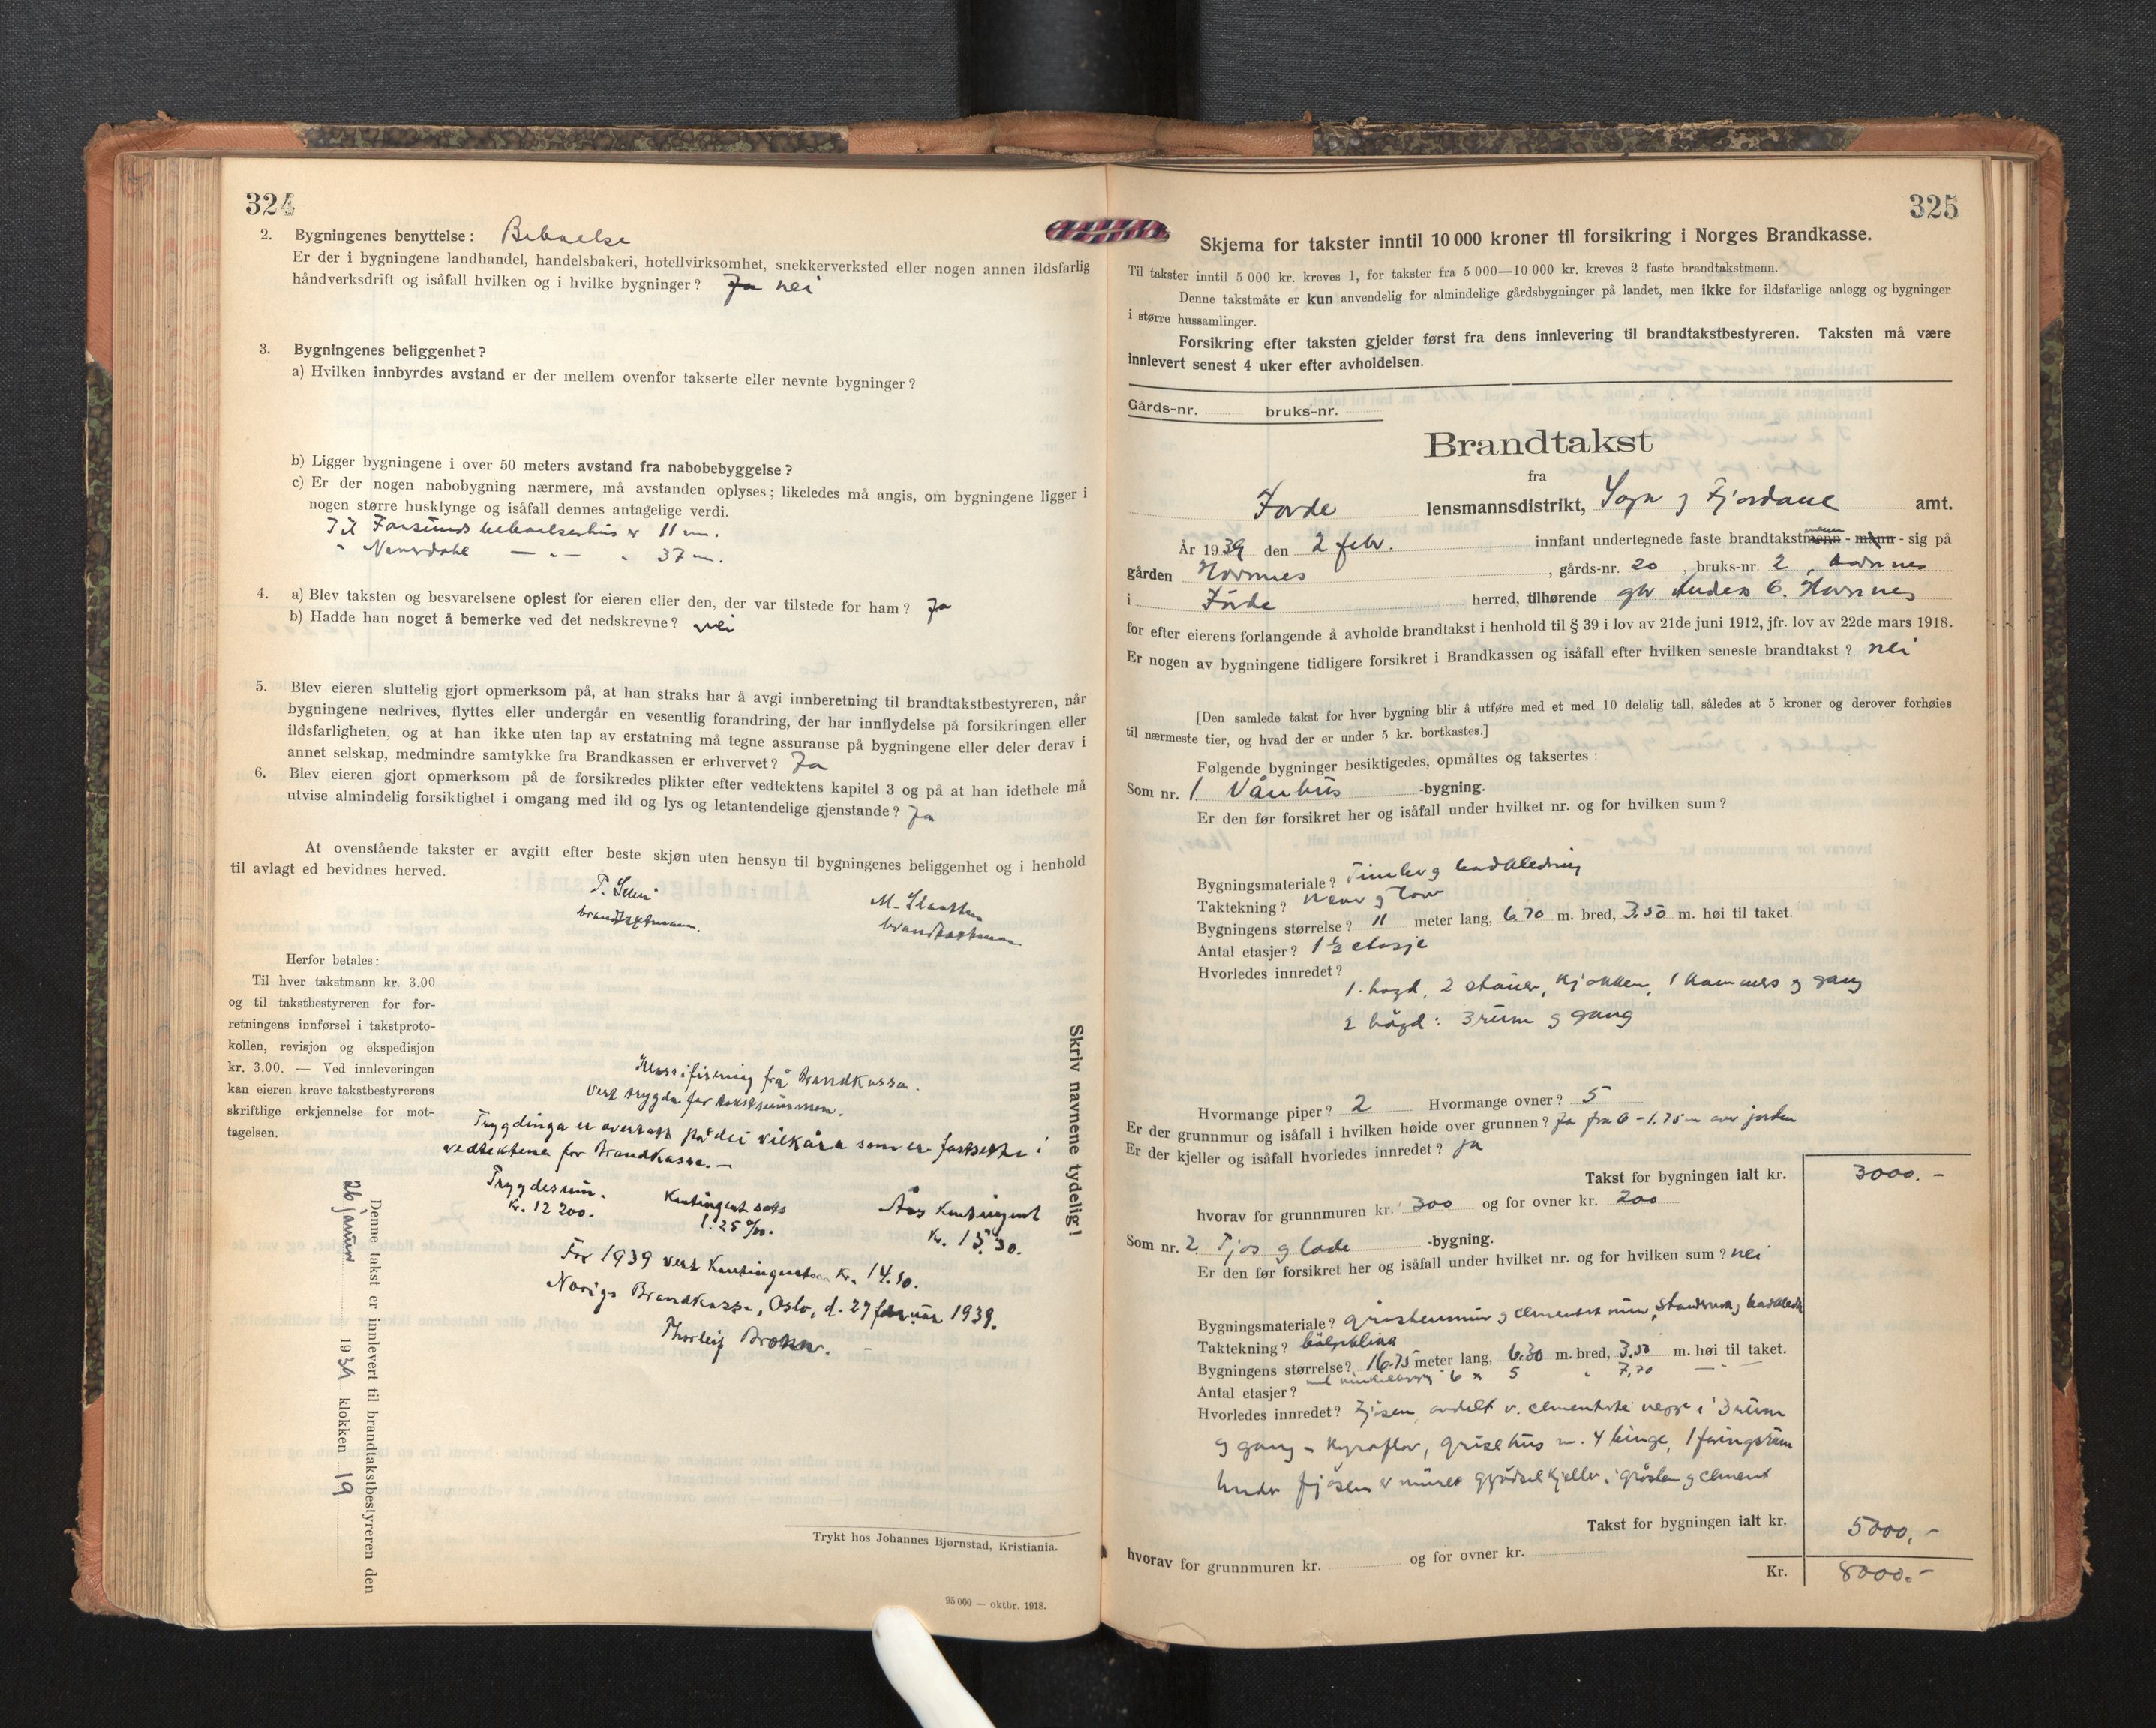 324
2. Bygningenes benyttelse: Beboelse
Er der i bygningene landhandel, handelsbakeri, hotellvirksomhet, snekkerverksted eller nogen annen ildsfarlig
håndverksdrift og isåfall hvilken og i hvilke bygninger? Ja nei
3. Bygningenes beliggenhet?
a) Hvilken innbyrdes avstand er der mellem ovenfor takserte eller nevnte bygninger?
b) Ligger bygningene i over 50 meters avstand fra nabobebyggelse?
c) Er der nogen nabobygning nærmere, må avstanden oplyses; likeledes må angis, om bygningene ligger i
nogen større husklynge og isåfall dennes antagelige verdi.
Til Farsunds beboelseshus er 11 m.
" — " — " 37 m.
4. a) Blev taksten og besvarelsene oplest for eieren eller den, der var tilstede for ham? Ja
b) Hadde han noget å bemerke ved det nedskrevne? nei
5. Blev eieren sluttelig gjort opmerksom på, at han straks har å avgi innberetning til brandtakstbestyreren, når
bygningene nedrives, flyttes eller undergår en vesentlig forandring, der har innflydelse på forsikringen eller
ildsfarligheten, og at han ikke uten tap av erstatning må tegne assuranse på bygningene eller deler derav i
annet selskap, medmindre samtykke fra Brandkassen er erhvervet? Ja
6. Blev eieren gjort opmerksom på de forsikredes plikter efter vedtektens kapitel 3 og på at han idethele må
utvise almindelig forsiktighet i omgang med ild og lys og letantendelige gjenstande? Ja
At ovenstående takster er avgitt efter beste skjøn uten hensyn til bygningenes beliggenhet og i henhold
til avlagt ed bevidnes herved.
brandtakstmann. brandtakstmann
Herfor betales:
Til hver takstmann kr. 3.00
og til takstbestyreren for for-
retningens innførsel i takstproto-
kollen, revisjon og ekspedisjon
kr. 3.00. — Ved innleveringen
kan eieren kreve takstbestyrerens
skriftlige erkjennelse for mot-
tagelsen.
Klassifisering frå Brandkassa.
Vert trygda for takstsummen.
Trygdinga er overtatt på dei vilkåra som er fastsette i
vedtektene for Brandkassa. —
Trygdesum. Kontingent sats Års kontingent
Kr. 12 200. 1.25 ‰. Kr. 15.30.
For 1939 vert kontingenten Kr. 14.10.
Norigs Brandkasse, Oslo, d. 27 februar 1939.
Skriv navnene tydelig!
Denne takst er innlevert til brandtakstbestyreren den
26 januar 1939 klokken 19
Trykt hos Johannes Bjørnstad, Kristiania.
95 000 — oktbr. 1918.
325
Skjema for takster inntil 10 000 kroner til forsikring i Norges Brandkasse.
Til takster inntil 5 000 kr. kreves 1, for takster fra 5 000—10 000 kr. kreves 2 faste brandtakstmenn.
Denne takstmåte er kun anvendelig for almindelige gårdsbygninger på landet, men ikke for ildsfarlige anlegg og bygninger
i større hussamlinger.
Forsikring efter taksten gjelder først fra dens innlevering til brandtakstbestyreren. Taksten må være
innlevert senest 4 uker efter avholdelsen.
Gårds-nr. bruks-nr.
Brandtakst
fra
Førde lensmannsdistrikt, Sogn og Fjordane amt.
År 1939 den 2 febr. innfant undertegnede faste brandtakstmenn - mann - sig på
gården Hornnes, gårds-nr. 20, bruks-nr. 2, Hornnes
i Førde herred, tilhørende gbr Anders C. Hornnes
for efter eierens forlangende å avholde brandtakst i henhold til § 39 i lov av 21de juni 1912, jfr. lov av 22de mars 1918.
Er nogen av bygningene tidligere forsikret i Brandkassen og isåfall efter hvilken seneste brandtakst? nei
[Den samlede takst for hver bygning blir å utføre med et med 10 delelig tall, således at 5 kroner og derover forhøies
til nærmeste tier, og hvad der er under 5 kr. bortkastes.]
Følgende bygninger besiktigedes, opmåltes og taksertes:
Som nr. 1. Vånhus -bygning.
Er den før forsikret her og isåfall under hvilket nr. og for hvilken sum?
Bygningsmateriale? Timber og bordkledning
Taktekning? Never og torv
Bygningens størrelse? 11 meter lang, 6.70 m. bred, 3.50 m. høi til taket.
Antal etasjer? 1 ½ etasje
Hvorledes innredet?
1. høgd, 2 stover, kjøkken, 1 kammers og gang
2 høgd: 3 rum og gang
Hvormange piper? 2 Hvormange ovner? 5
Er der grunnmur og isåfall i hvilken høide over grunnen? Ja fra 0 - 1.75 m over jorden
Er der kjeller og isåfall hvorledes innredet? ja
Takst for bygningen ialt kr. 3000.-
hvorav for grunnmuren kr. 300 og for ovner kr. 200
Som nr. 2 Fjos og lade -bygning.
Er den før forsikret her og isåfall under hvilket nr. og for hvilken sum? nei
Bygningsmateriale? gråsteinsmur og cementert mur, standverk og bordkledn
Taktekning? bølgeblikk
Bygningens størrelse? 16.75 meter lang, 6.30 m. bred, 3.50 m. høi til taket.
6 x 5 " 7.70 —
Antal etasjer?
Hvorledes innredet? Fjøsen avdelt v. cementerte vegge i 3 rum
og gang - kyraflor, grisehus m. 4 binge, 1 foringsrum
Under fjøsen er muret gjødselkjeller i gråsten og cement
Takst for bygningen ialt kr. 5000.-
hvorav for grunnmuren kr. og for ovner kr.
Kr. 8000.-